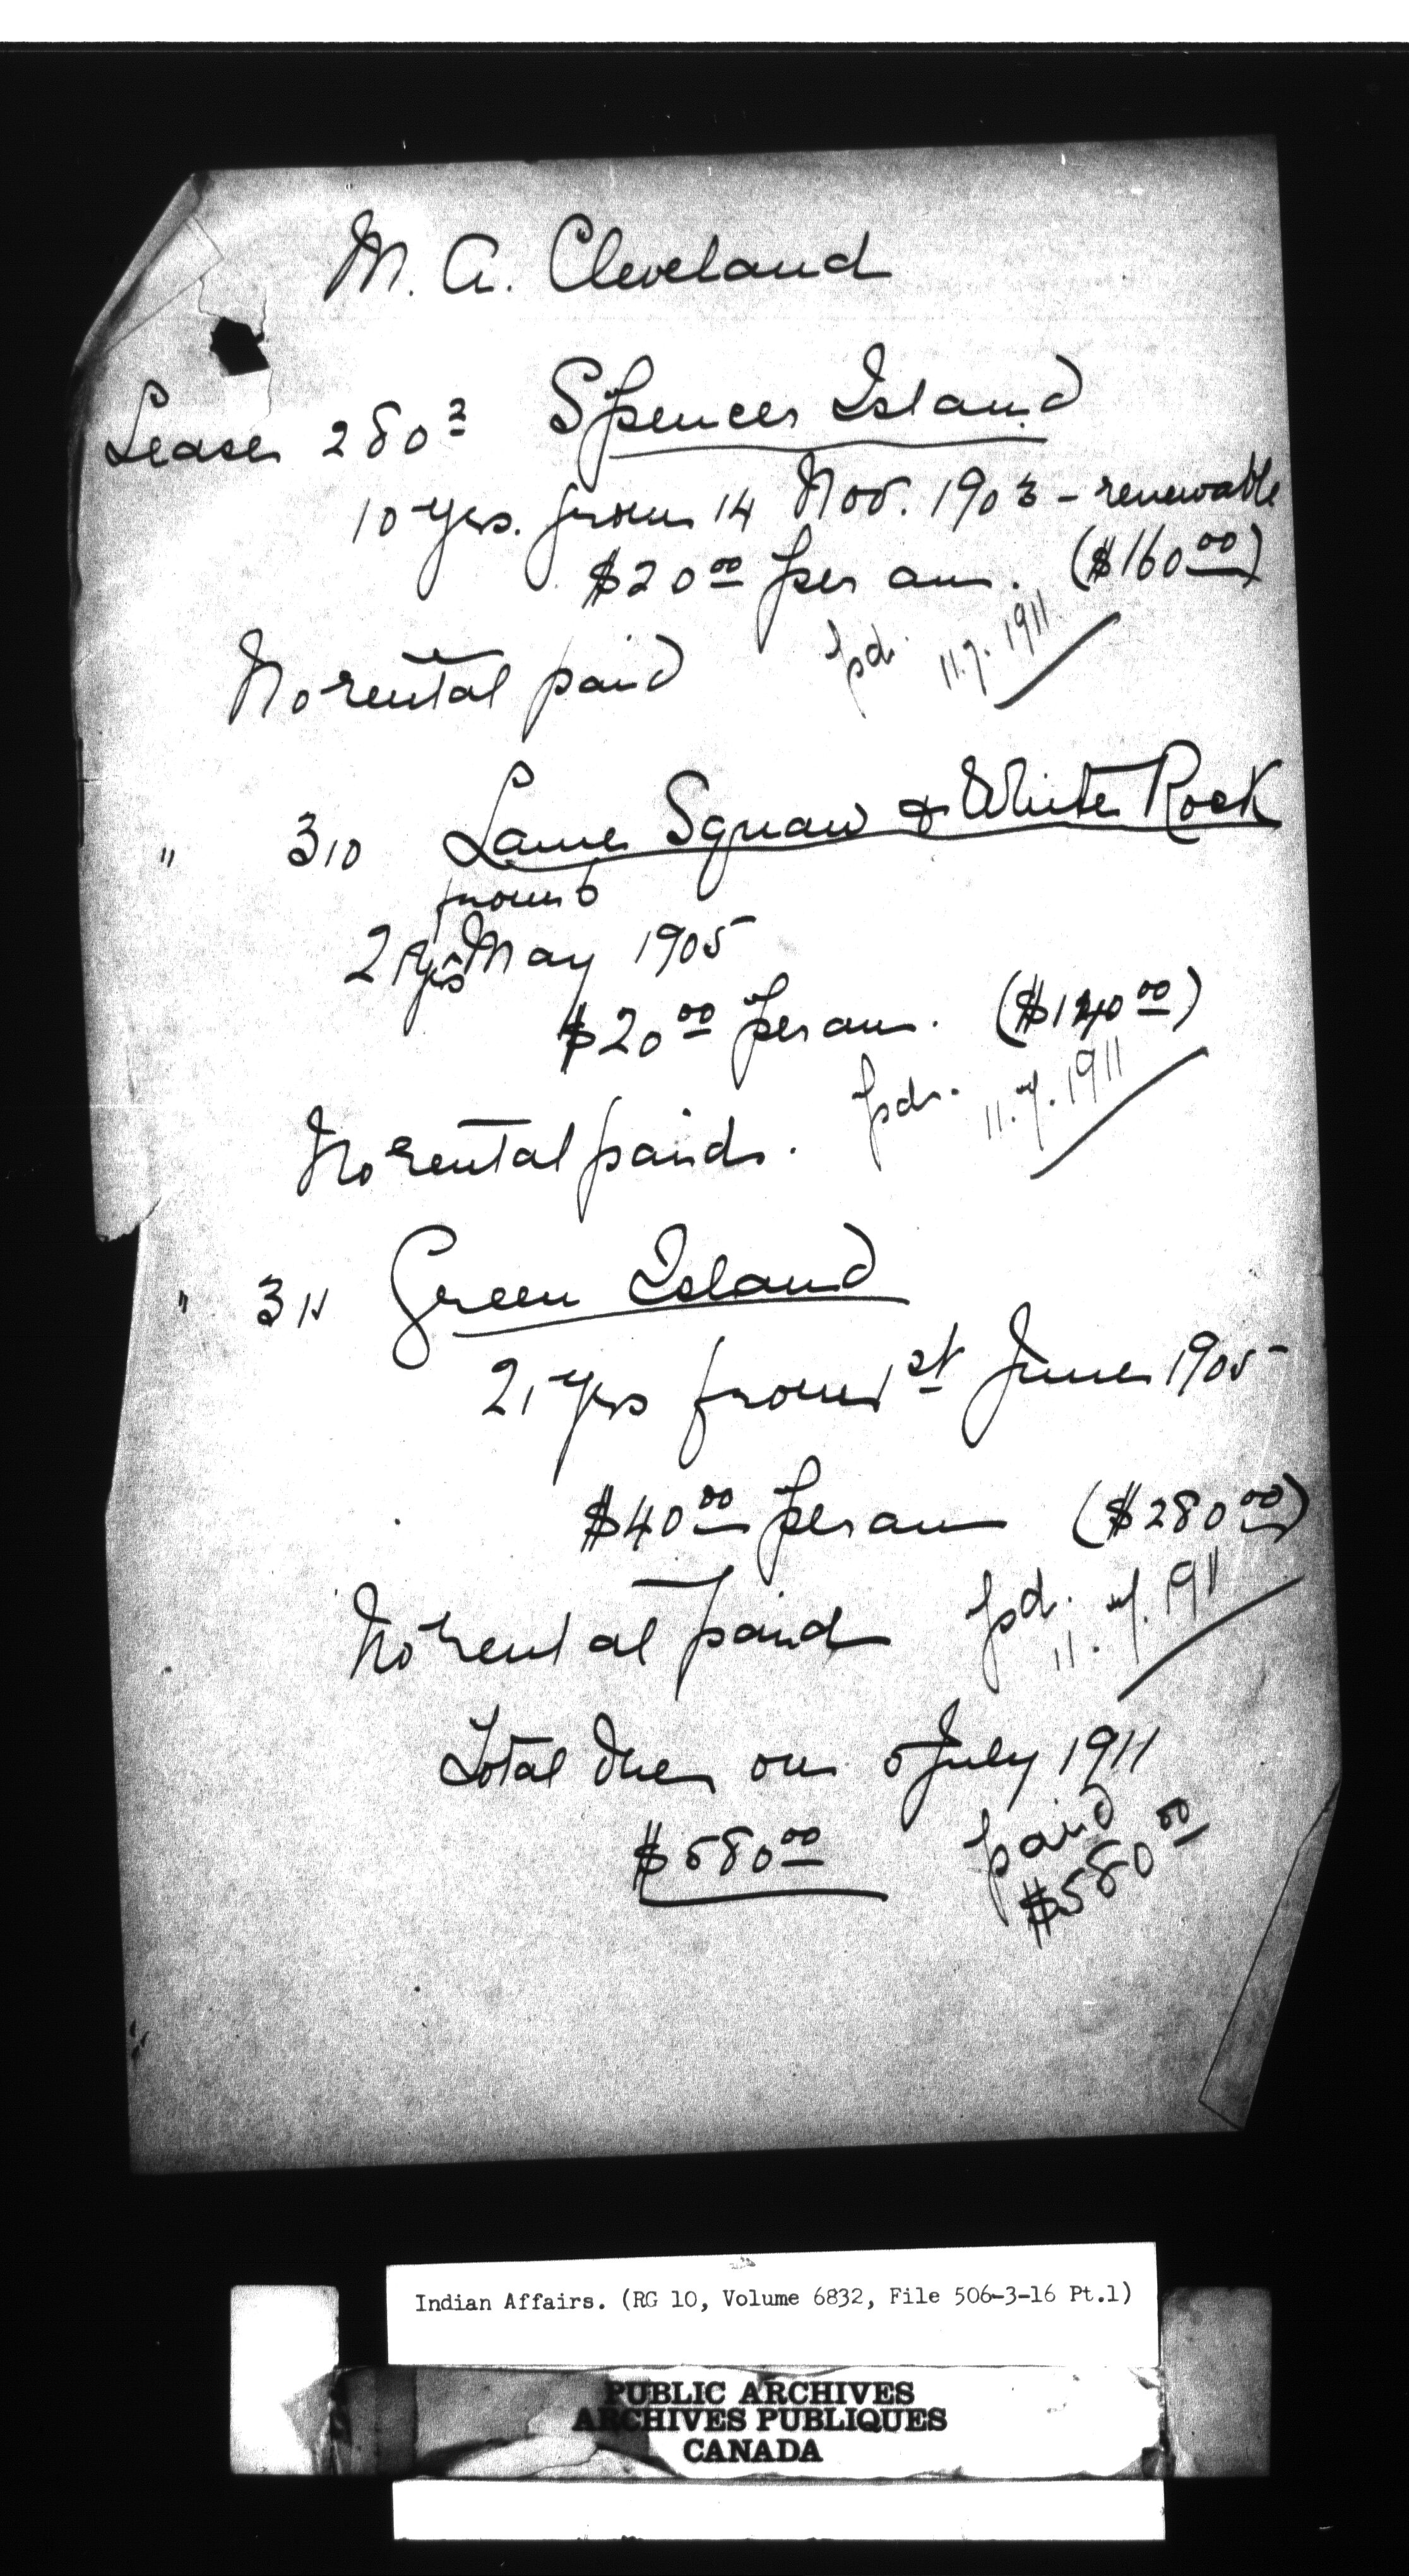 M. A. Cleveland
Lease 280² Spencer Island
10 yrs. from 14 Nov. 1903 - renewable
$20⁰⁰ per an. ($160⁰⁰)
No rental paid pd. 11.7.1911
" 310 Lame Squaw & White Rock
from 6
21 yrs May 1905
$20⁰⁰ per an. ($140⁰⁰)
No rental paid. pd. 11.7.1911
" 311 Green Island
21 yrs from 1st June 1905
$40⁰⁰ per an ($280⁰⁰)
No rental paid pd. 11.7.1911
Total due on 5 July 1911
$580⁰⁰ paid $580⁰⁰
Indian Affairs. (RG 10, Volume 6832, File 506-3-16 Pt.1)
PUBLIC ARCHIVES
ARCHIVES PUBLIQUES
CANADA